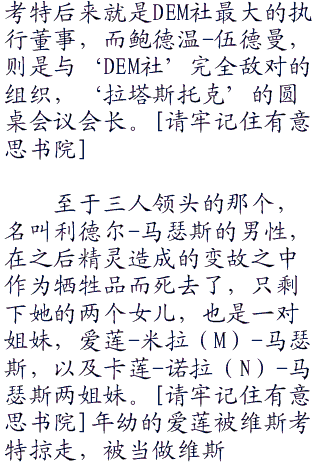 考特后来就是DEM社最大的执
行董事，而鲍德温-伍德曼，
则是与‘DEM社’完全敌对的
组织，‘拉塔斯托克’的圆
桌会议会长。[请牢记住有意
思书院]
至于三人领头的那个，
名叫利德尔-马瑟斯的男性，
在之后精灵造成的变故之中
作为牺牲品而死去了，只剩
下她的两个女儿，也是一对
姐妹，爱莲-米拉（M）-马瑟
斯，以及卡莲-诺拉（N）-马
瑟斯两姐妹。[请牢记住有意
思书院]年幼的爱莲被维斯考
特掠走，被当做维斯